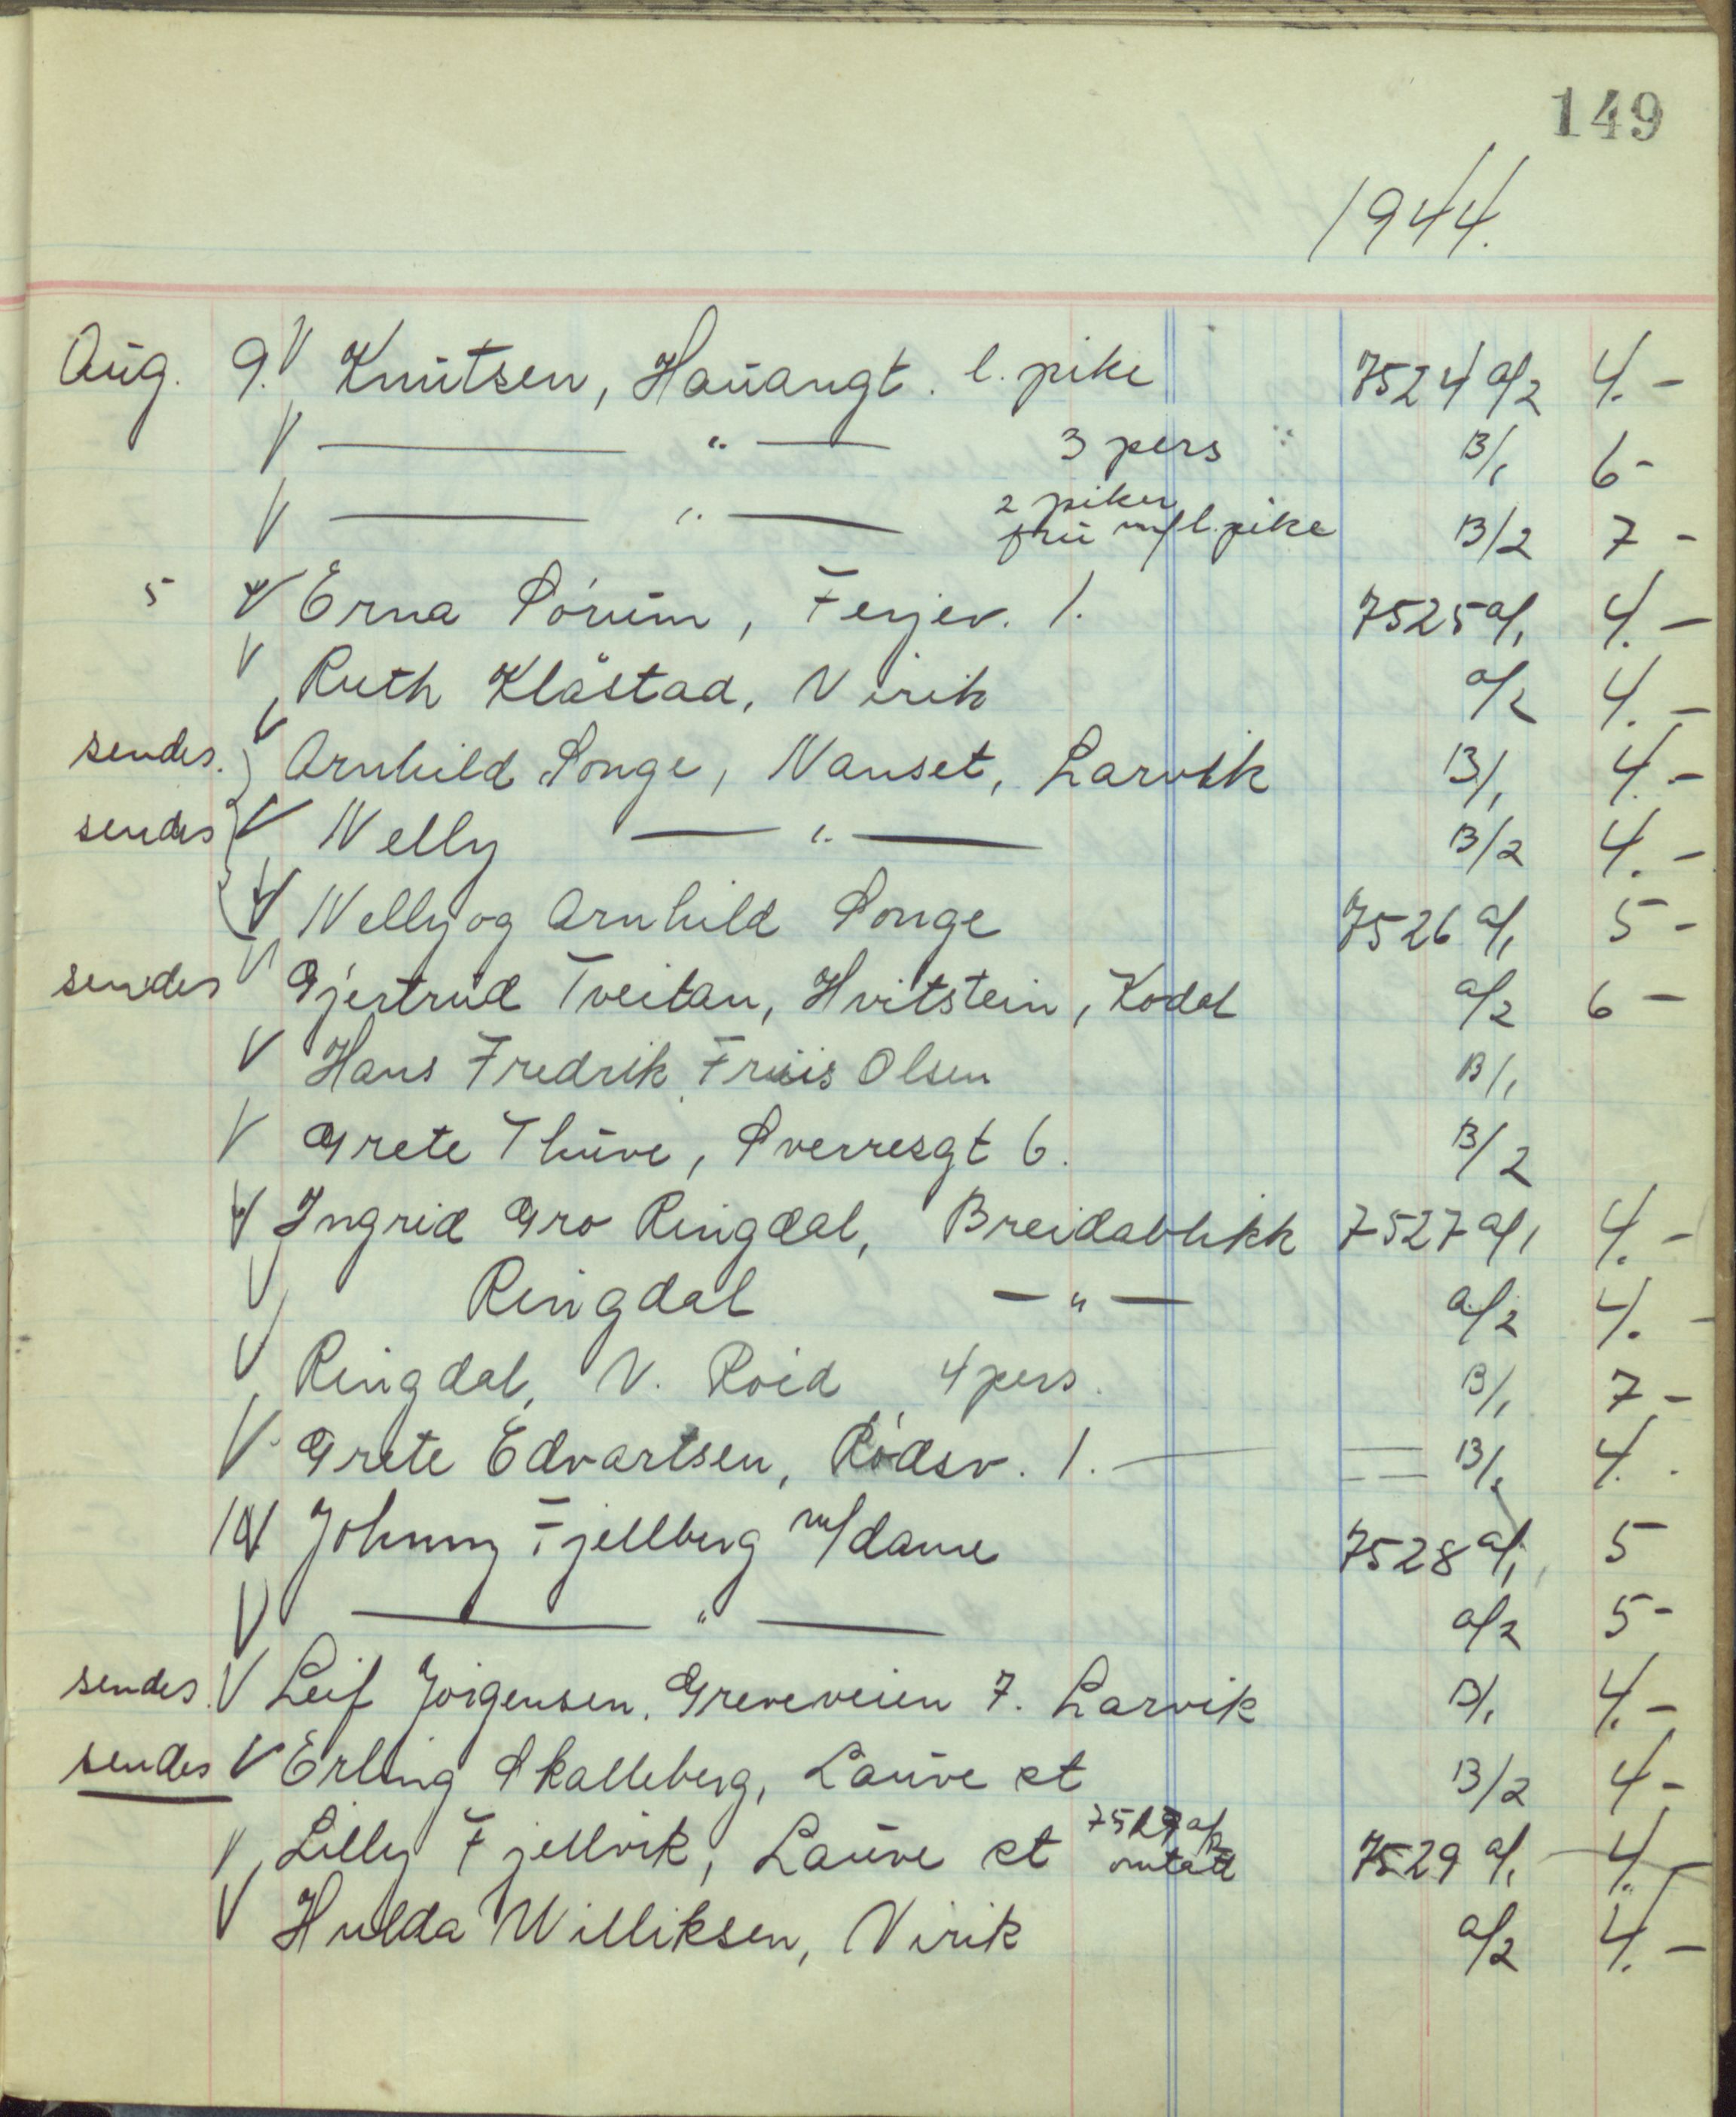 149
1944.
Aug. 9. V Knutsen, Hauangt. l. pike 7524 a/2 4.-
V — " — 3 pers B/1 6-
V — " — 2 piker fru m/l. pike B/2 7-
5 V Erna Sørum, Ferjev. 1. 7525 a/1 4.-
V Ruth Klåstad, Virik a/2 4.-
sendes. V Arnhild Songe, Nanset, Larvik B/1 4.-
sendes V Nelly — " — B/2 4.-
V Nelly og Arnhild Songe 7526 a/1 5-
sendes V Gjertrud Tveitan, Hvitstein, Kodal a/2 6-
V Hans Fredrik Friis Olsen B/1
V Grete Thuve, Sverresgt 6. B/2
V Ingrid Gro Ringdal, Breidablikk 7527 a/1 4.-
V Ringdal — " — a/2 4.-
V Ringdal, V. Roid 4 pers. B/1 7-
V Grete Edvartsen, Rødsv. 1. — B/1 4.
10 V Johnny Fjellberg m/dame 7528 a/1 5
V — " — a/2 5-
sendes. V Leif Jørgensen. Greveveien 7. Larvik B/1 4.-
sendes V Erling Skalleberg, Lauve st B/2 4-
V Lilly Fjellvik, Lauve st omtatt 7529 a/1 4.-
V Hulda Williksen, Virik a/2 4.-